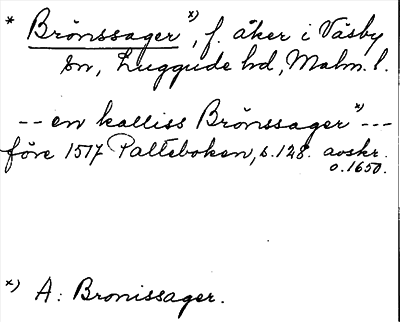 * Brönssager x), f. åker i Väsby
sn, Luggude hd, Malm. l.
-- en kalliss Brönssager x) ---
före 1517 Palteboken, s. 128. avskr.
o. 1650.
x) A: Bronissager.